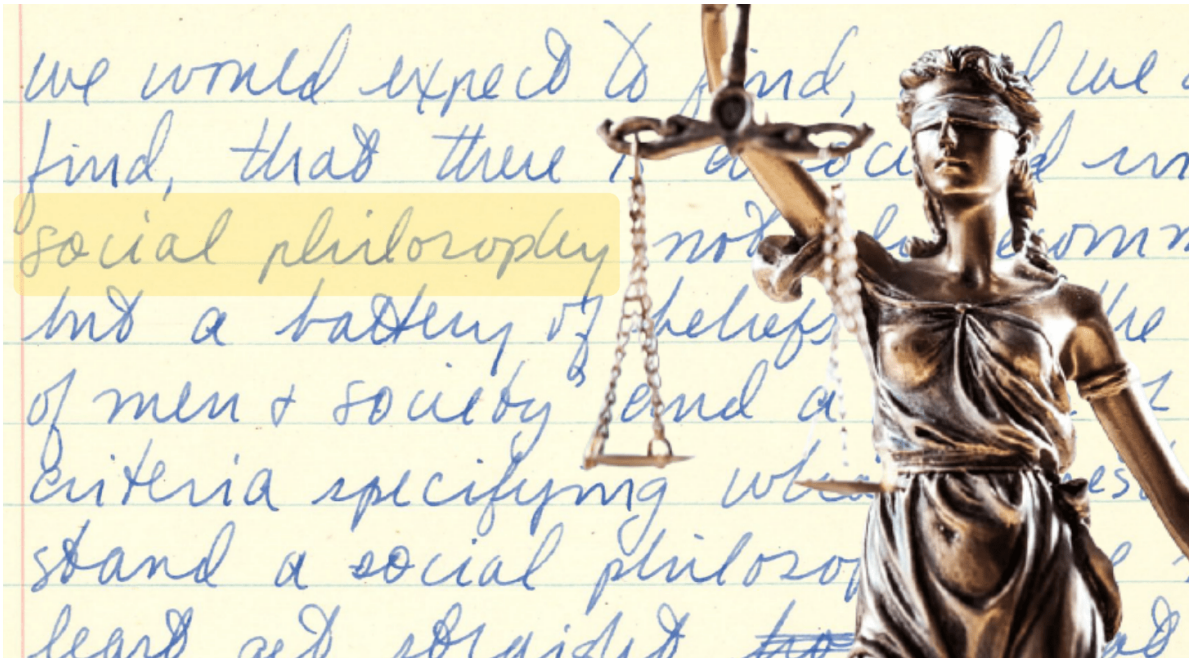 we would expect to find, we
find, that there
social philosophy not
but a battery of beliefs the
of men & society and a
criteria specifying
stand a social
least get straight